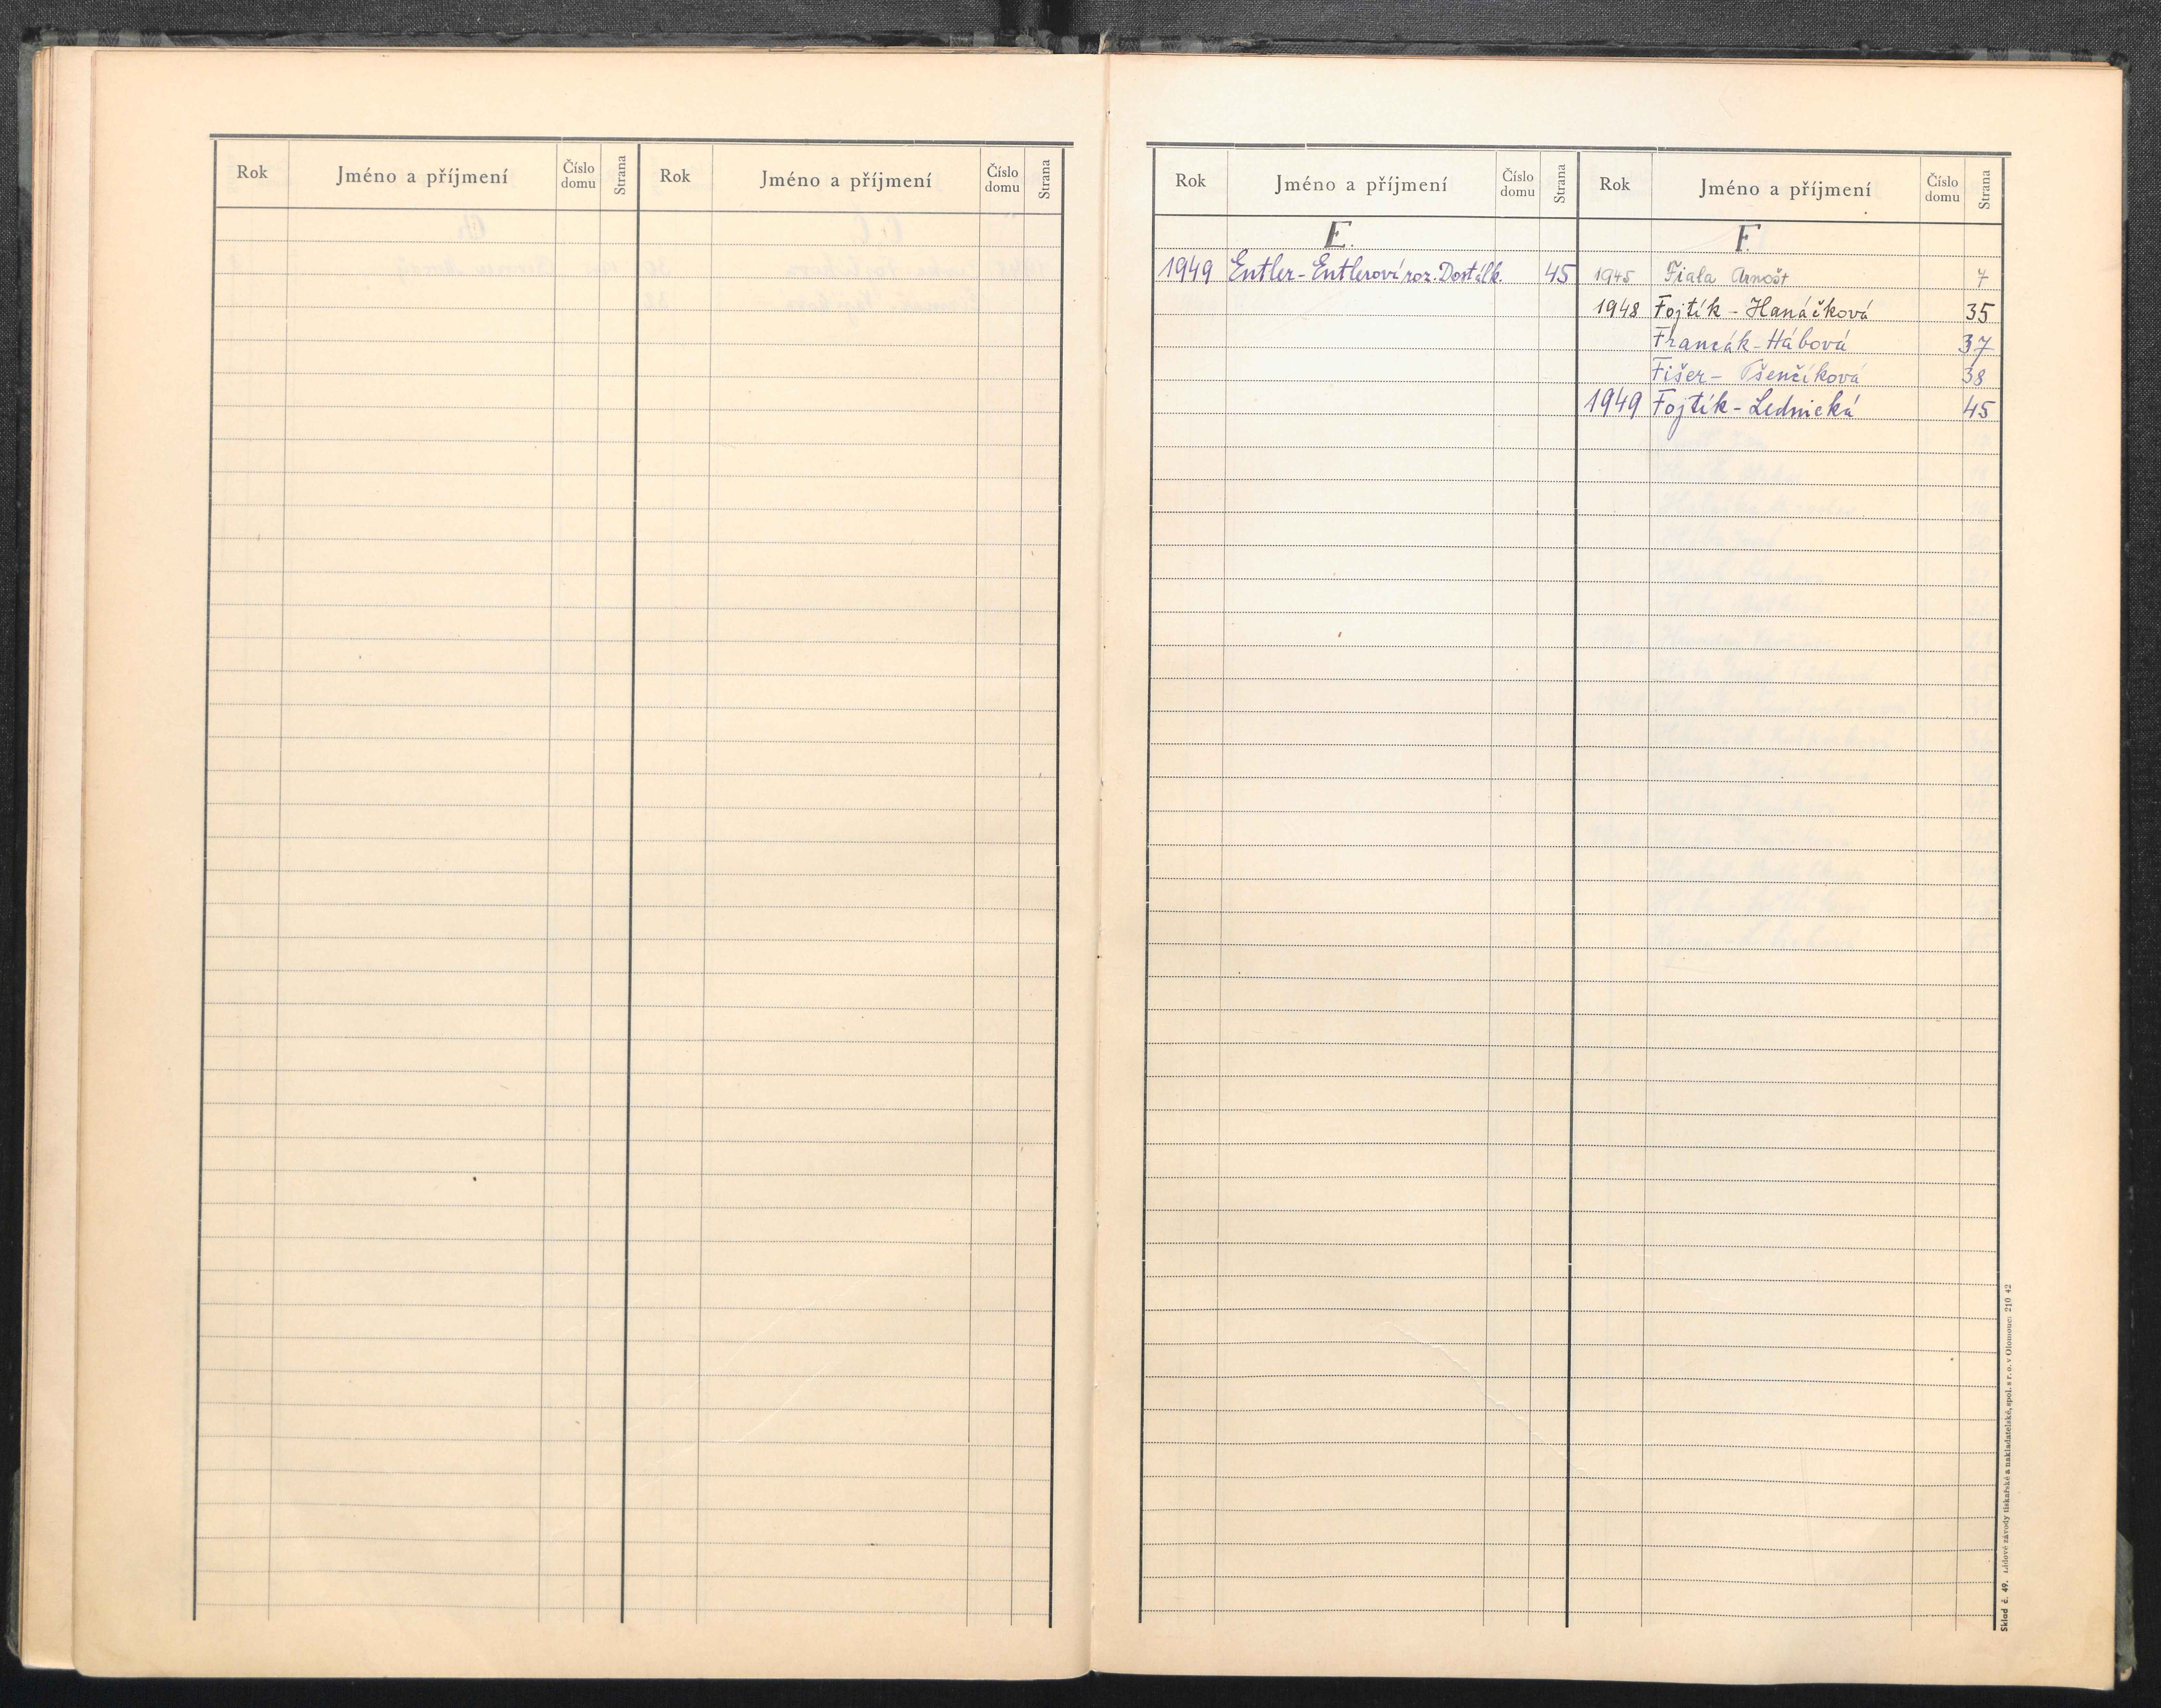 Rok Jméno a příjmení Číslo domu Strana Rok Jméno a příjmení Číslo domu Strana
Rok Jméno a příjmení Číslo domu Strana Rok Jméno a příjmení Číslo domu Strana
E.
1949 Entler-Entlerová roz. Dostálk. 45
F.
1945 Fiala Arnošt 7
1948 Fojtík - Hanáčková 35
Francák - Hábová 37
Fišer - Pšenčíková 38
1949 Fojtík - Lednická 45
Sklad č. 49. Lidové závody tiskařské a nakladatelské, spol. s r. o. v Olomouci 210 42